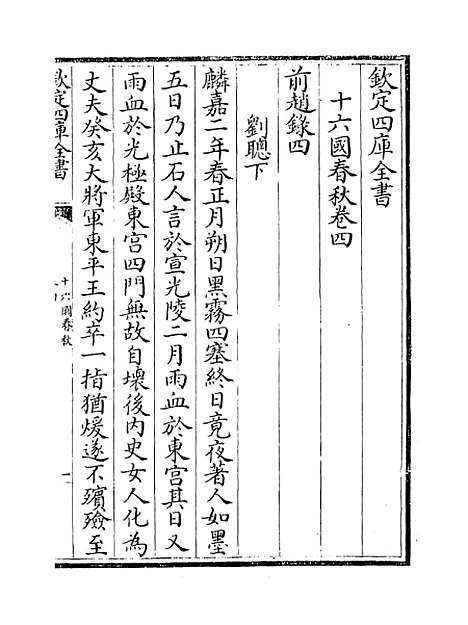 欽定四庫全書
十六國春秋卷四
前趙錄四
劉聰下
麟嘉二年春正月朔日黑霧四塞終日竟夜著人如墨
五日乃止石人言於宣光陵二月雨血於東宫其日又
雨血於光極殿東宫四門無故自壞後内史女人化為
丈夫癸亥大將軍東平王約卒一指猶煖遂不殯殮至
欽定四庫全書
十六國春秋
一